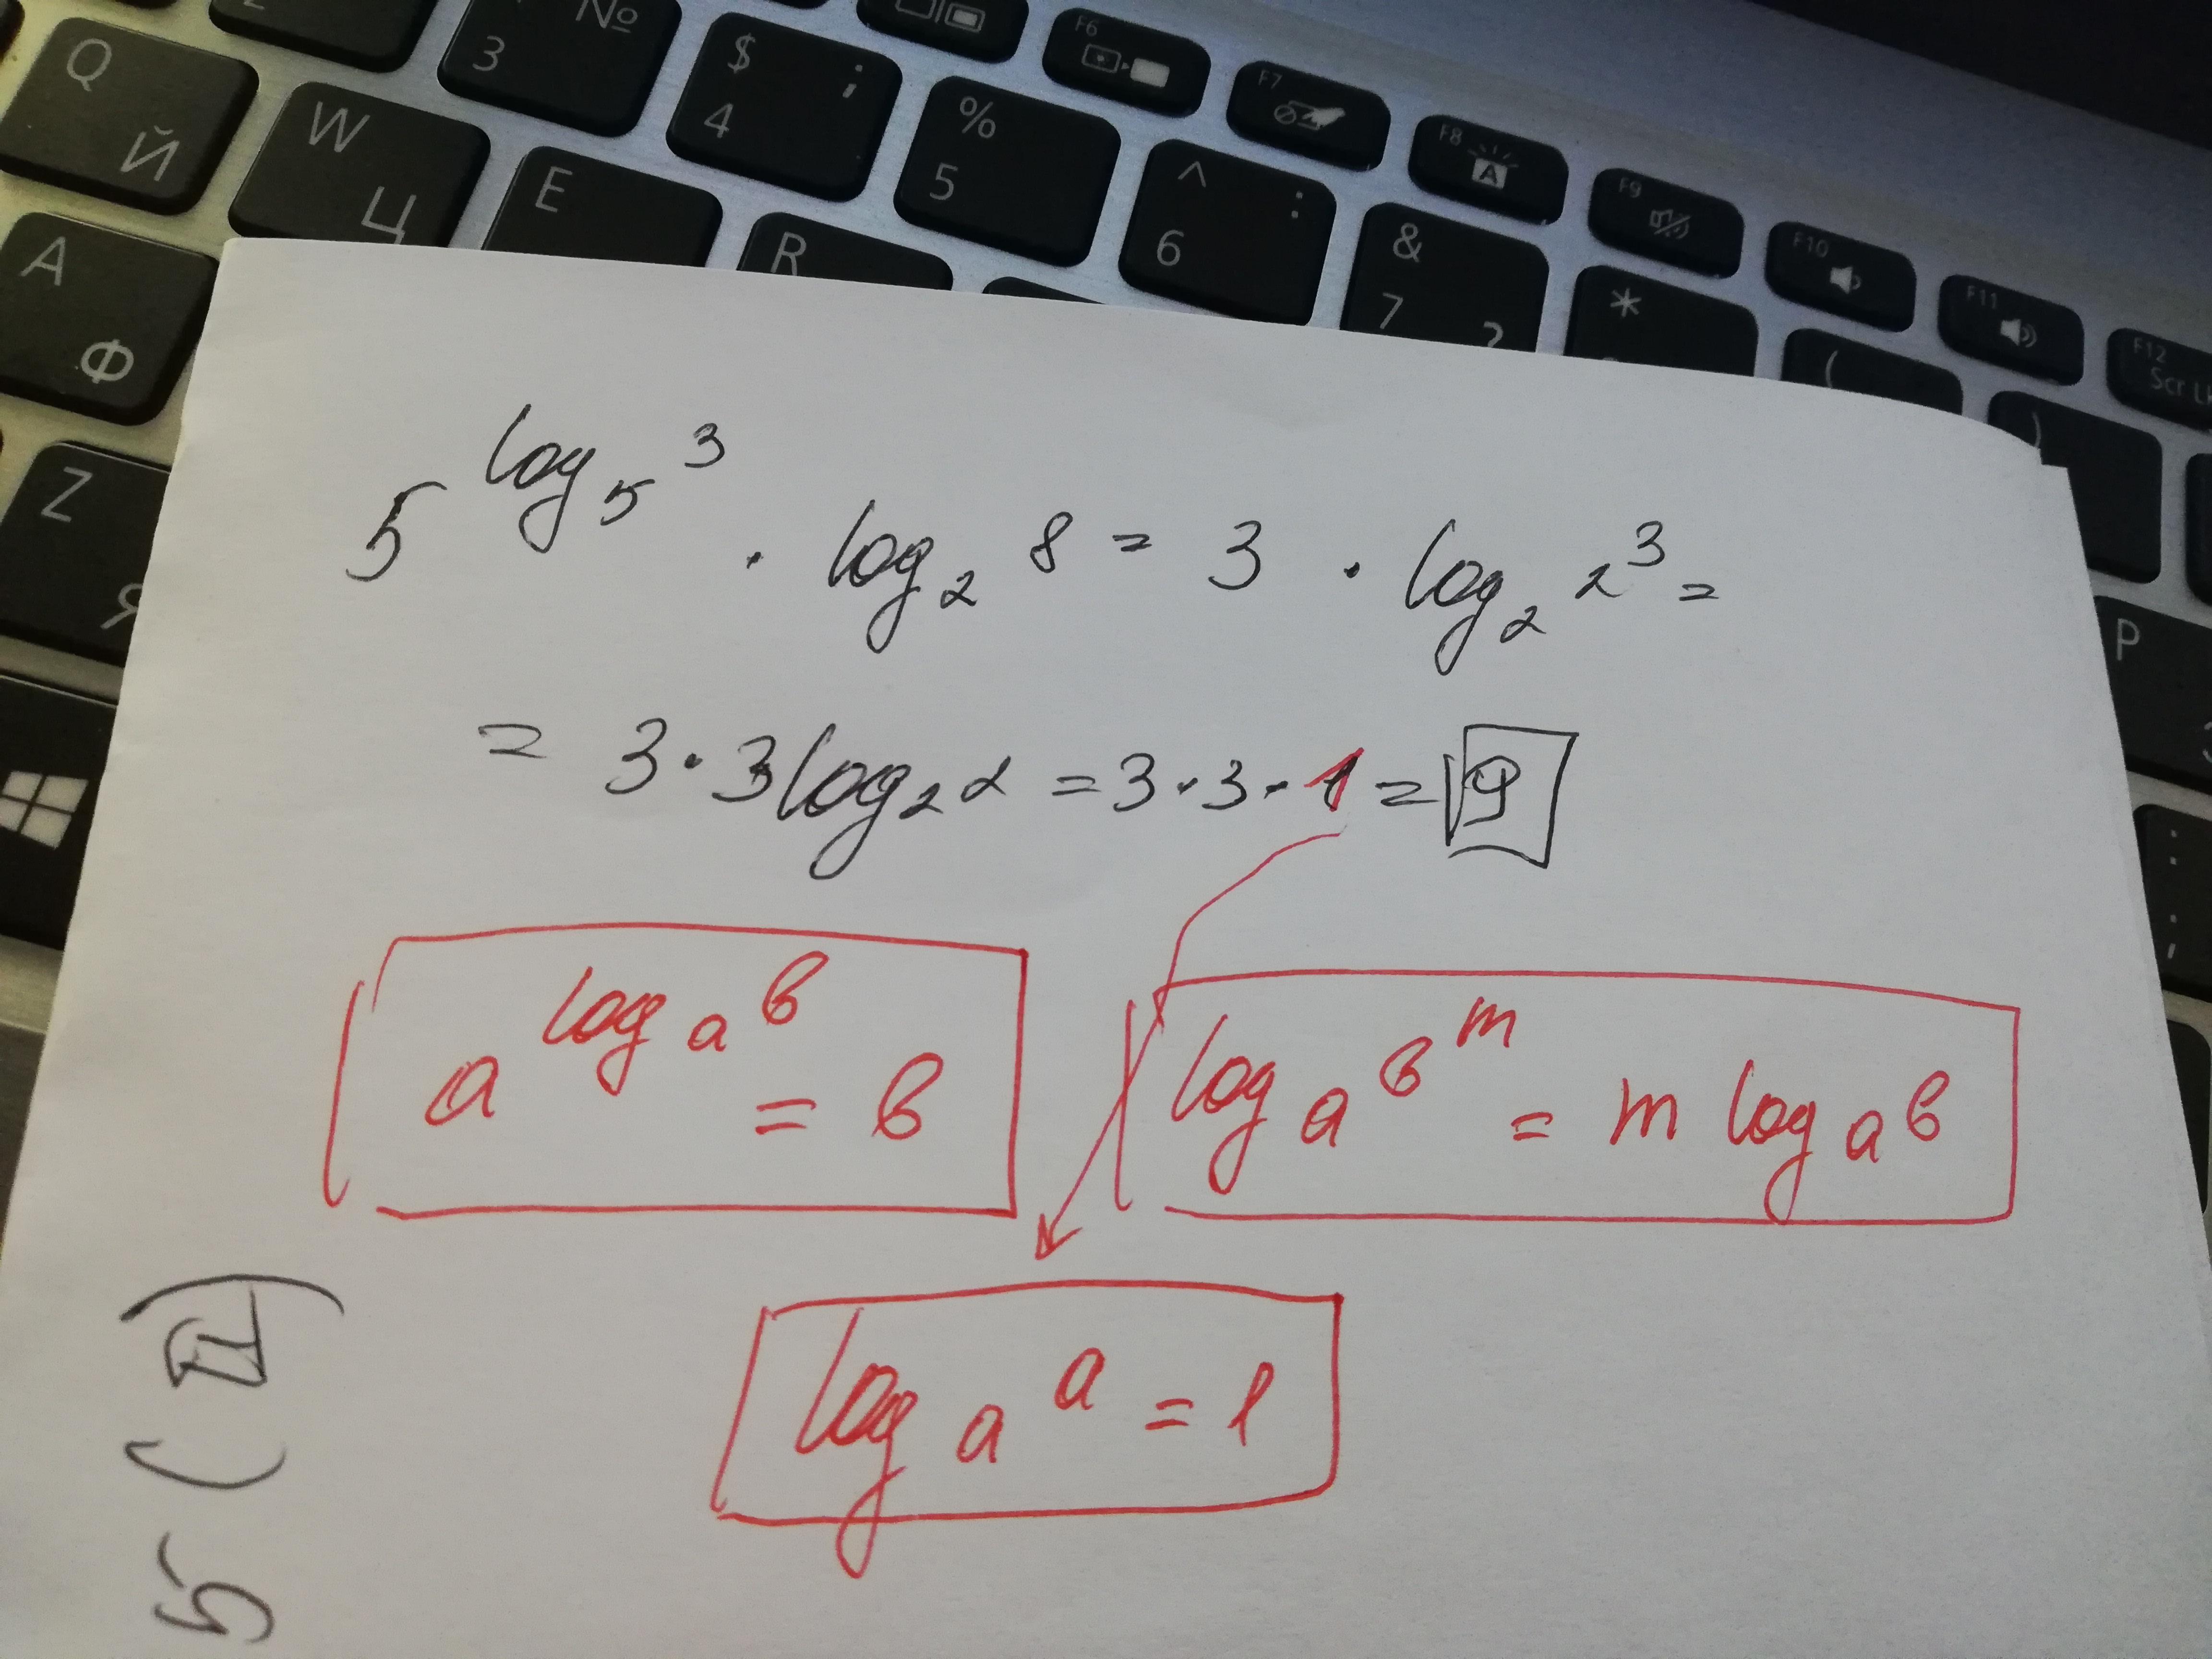 №
3
$ ;
4
%
5
^ :
6
&
7
*
(
)
F6
F7
F8
A
F9
F10
F11
F12
Scr Lk
Q
Й
W
Ц
E
R
P
A
Ф
Z
Я
:
;
5^{log_5 3} · log_2 8 = 3 · log_2 2^3 =
= 3·3log_2 2 = 3·3·1 = 9
a^{log_a b} = b
log_a b^m = m log_a b
log_a a = 1